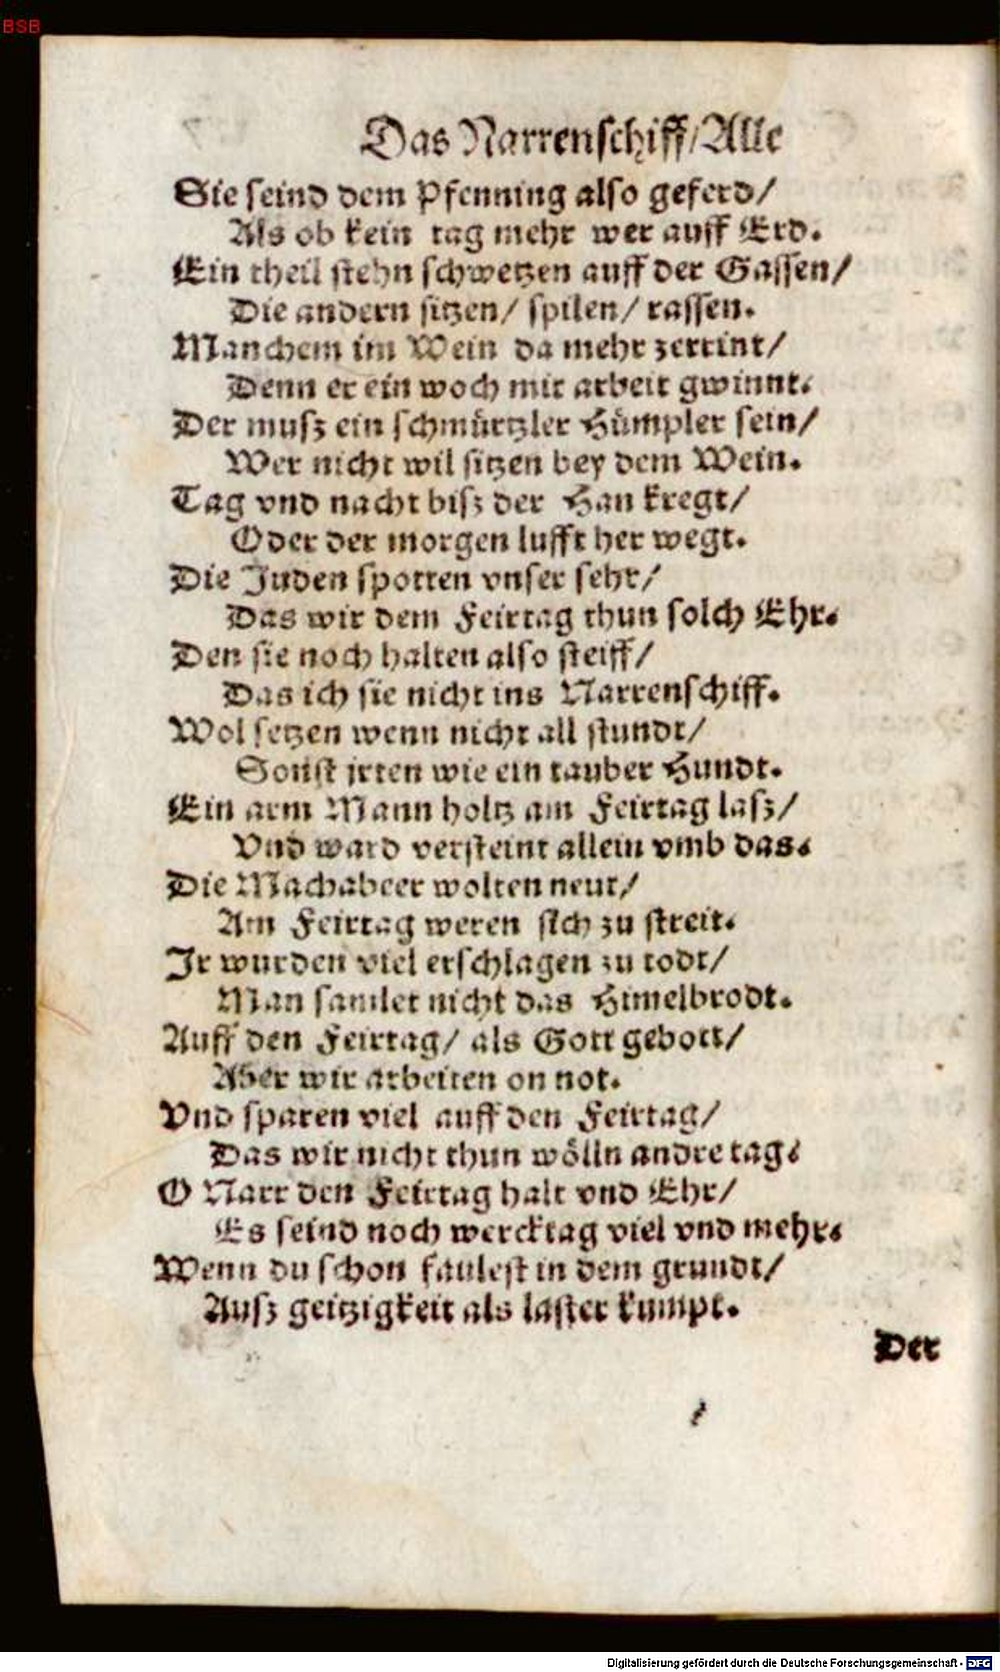 BSB
Das Narrenschiff/Alle
Sie seind dem Pfenning also geferd/
Als ob kein tag mehr wer auff Erd.
Ein theil stehn schwetzen auff der Gassen/
Die andern sitzen/ spilen/ rassen.
Manchem im Wein da mehr zerrint/
Denn er ein woch mit arbeit gwinnt.
Der musz ein schmürtzler Hümpler sein/
Wer nicht wil sitzen bey dem Wein.
Tag vnd nacht bisz der Han kregt/
Oder der morgen lufft her wegt.
Die Juden spotten vnser sehr/
Das wir dem Feirtag thun solch Ehr.
Den sie noch halten also steiff/
Das ich sie nicht ins Narrenschiff.
Wol setzen wenn nicht all stundt/
Sonst irten wie ein tauber Hundt.
Ein arm Mann holtz am Feirtag lasz/
Vnd ward versteint allein vmb das.
Die Machabeer wolten neur/
Am Feirtag weren sich zu streit.
Jr wurden viel erschlagen zu todt/
Man samlet nicht das Himelbrodt.
Auff den Feirtag/ als Gott gebott/
Aber wir arbeiten on not.
Vnd sparen viel auff den Feirtag/
Das wir nicht thun wölln andre tag.
O Narr den Feirtag halt vnd Ehr/
Es seind noch wercktag viel vnd mehr.
Wenn du schon faulest in dem grundt/
Ausz geitzigkeit als laster kumpt.
Der
Digitalisierung gefördert durch die Deutsche Forschungsgemeinschaft - DFG